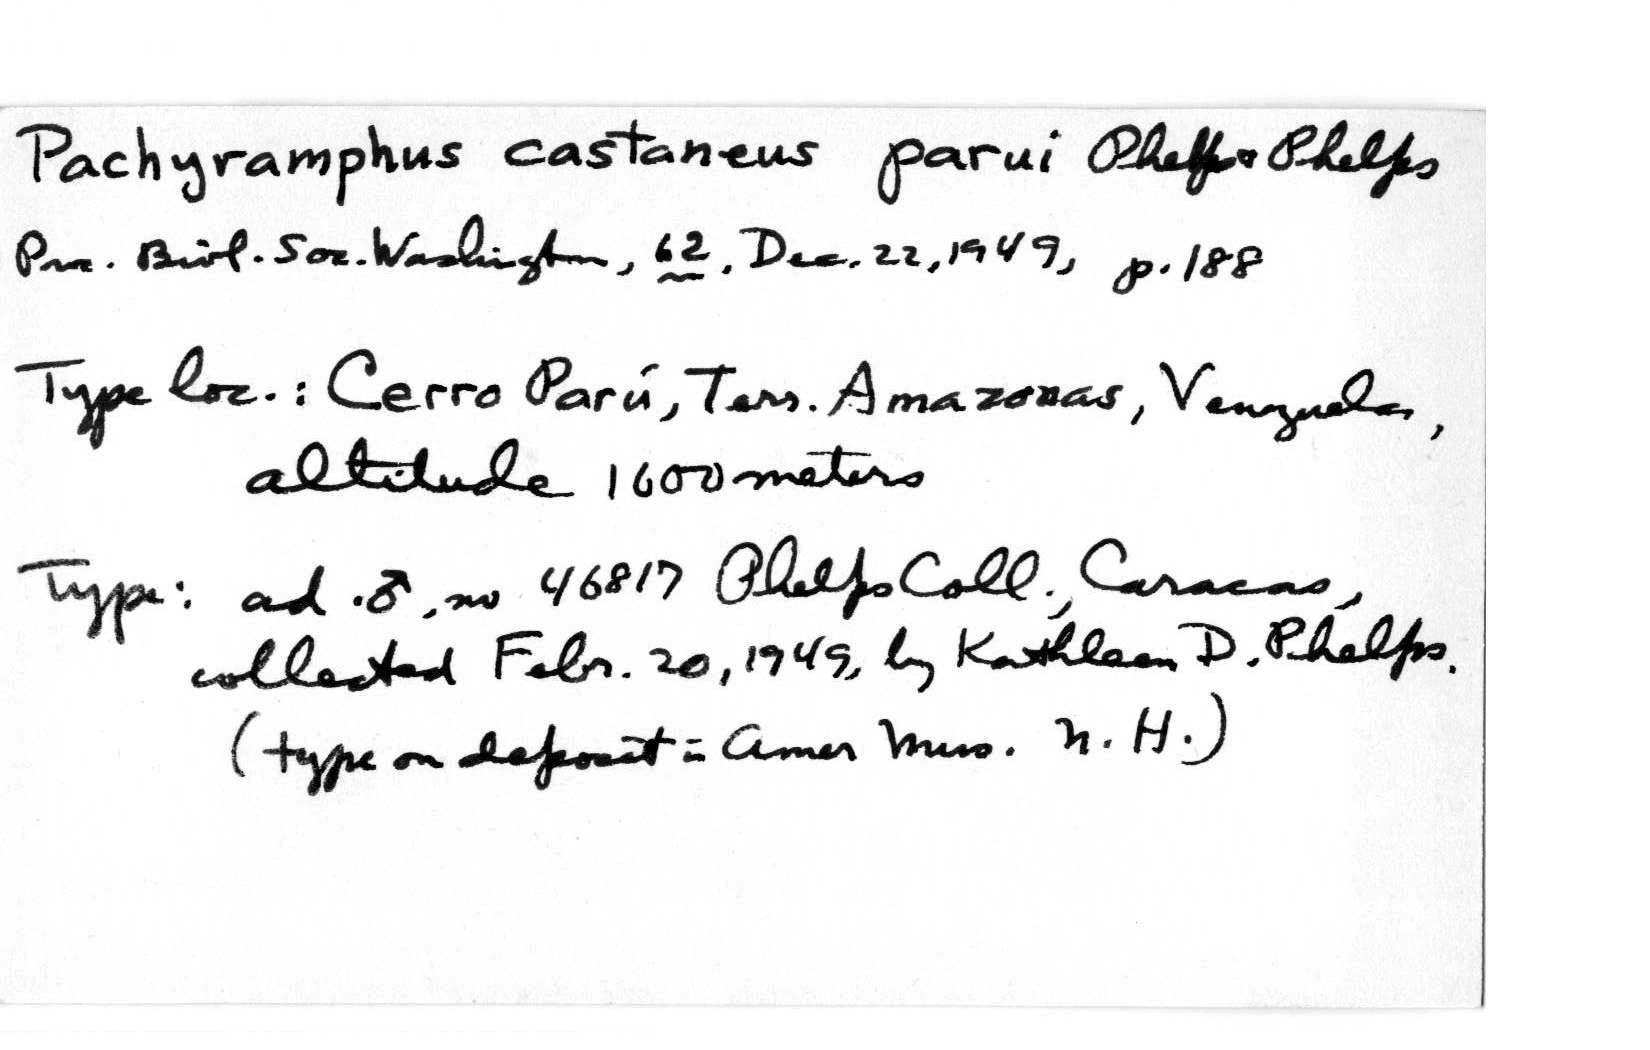 Pachyramphus castaneus parui Phelps & Phelps
Proc. Biol. Soc. Washington, 62, Dec. 22, 1949, p. 188
Type loc. : Cerro Parú, Terr. Amazonas, Venezuela,
altitude 1600 meters
Type: ad. ♂, no 46817 Phelps Coll., Caracas,
collected Febr. 20, 1949, by Kathleen D. Phelps.
(type on deposit in Amer Mus. N. H.)